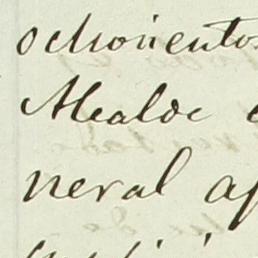 ochocientos
Alcalde
neral ap